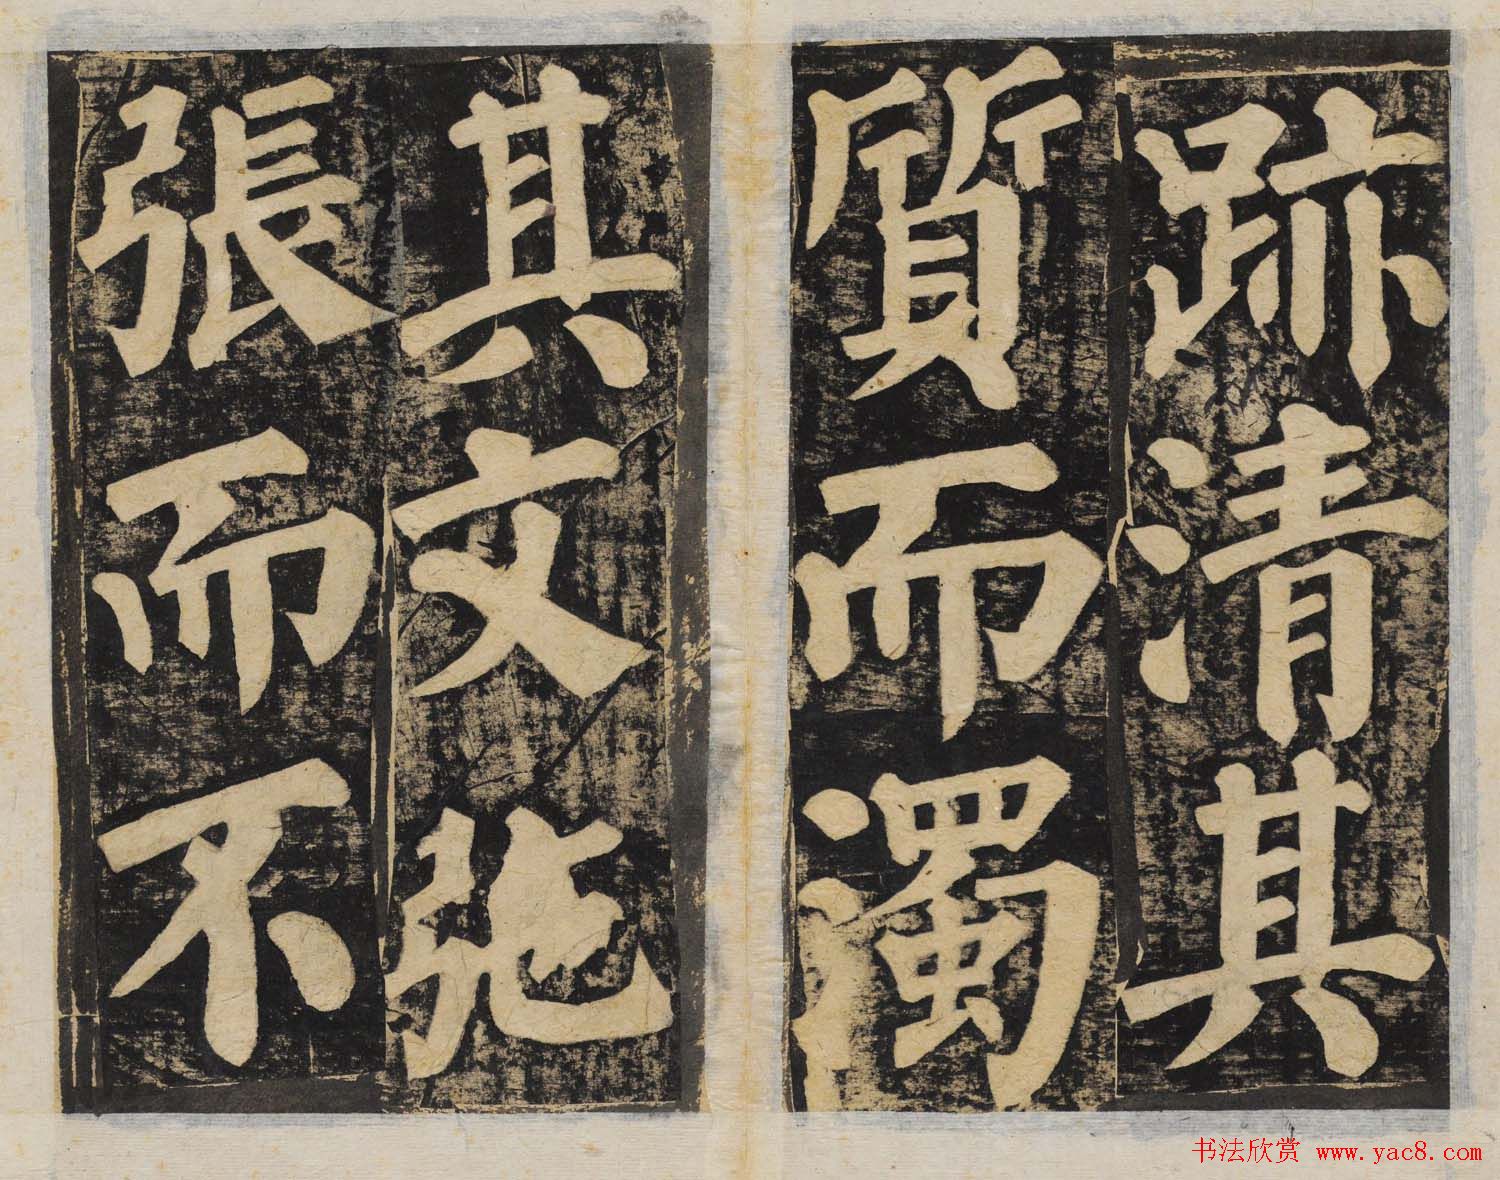 跡清其
質而濁
其文弛
張而不
书法欣赏 www.yac8.com